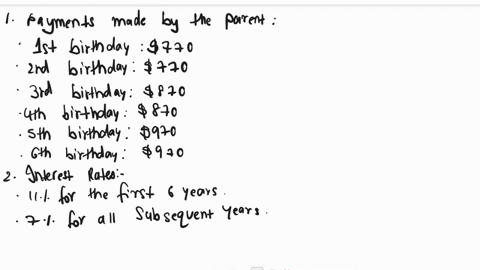 1. Payments made by the parent:
· 1st birthday: $770
· 2nd birthday: $770
· 3rd birthday: $870
· 4th birthday: $870
· 5th birthday: $970
· 6th birthday: $970
2. Interest Rates:-
· 11% for the first 6 years.
· 7% for all Subsequent Years.